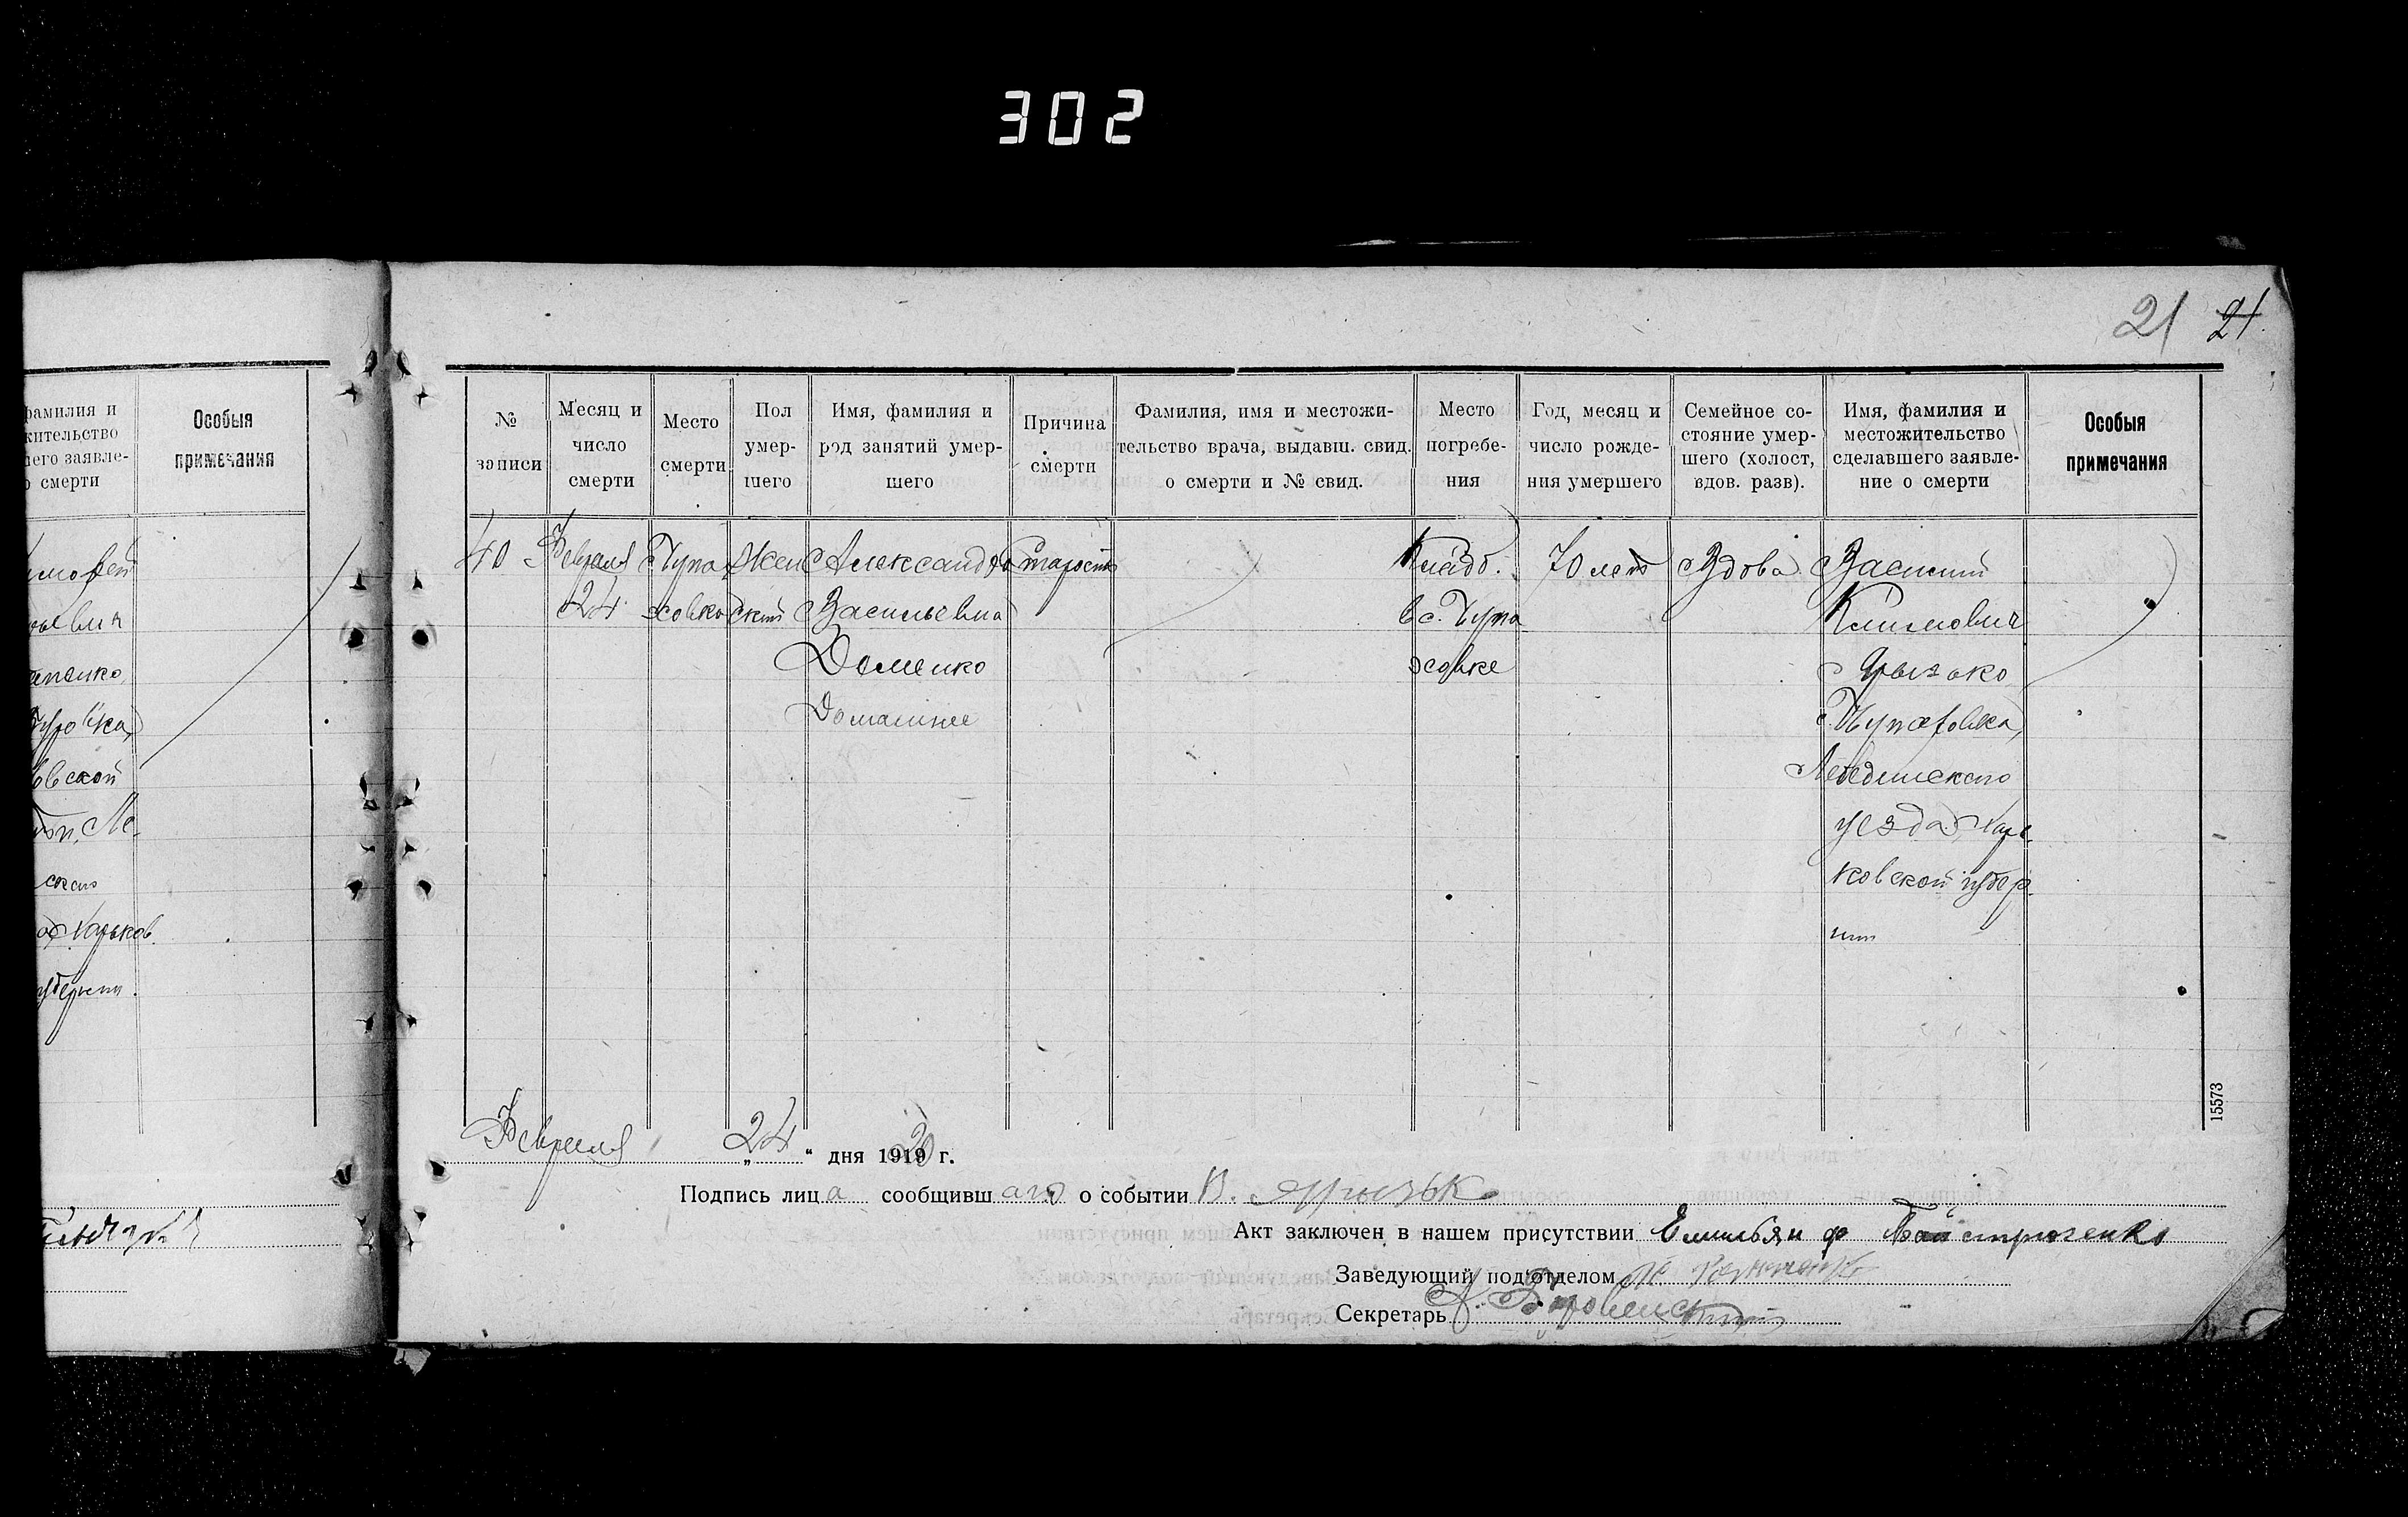 302
21 21.
фамилия и
жительство
шего заявле-
о смерти
Особыя
примечания
овской
Ле-
Харьков.
губернии.
№
записи
Месяц и
число
смерти
Место
смерти
Пол
умер-
шего
Имя, фамилия и
род занятий умер-
шего
Причина
смерти
Фамилия, имя и местожи-
тельство врача, выдавш. свид.
о смерти и № свид.
Место
погребе-
ния
Год, месяц и
число рожде-
ния умершего
Семейное со-
стояние умер-
шего (холост,
вдов. разв).
Имя, фамилия и
местожительство
сделавшего заявле-
ние о смерти
Особыя
примечания
40
Февраля
24
с. Чупа
ховка
Жен
ский
Александра
Васильевна
Доменко
Домашнее
старость
Кладб.
в с. Чупа
ховке
70 лет
Вдова
Василий
Климович
с. Чупаховка,
Лебединского
уезда, Харь-
ковской губер-
нии
15573
Февраля „24“ дня 1920 г.
Подпись лица сообщившаго о событии В.
Акт заключен в нашем присутствии Емильян ф
Заведующий подотделом
Секретарь